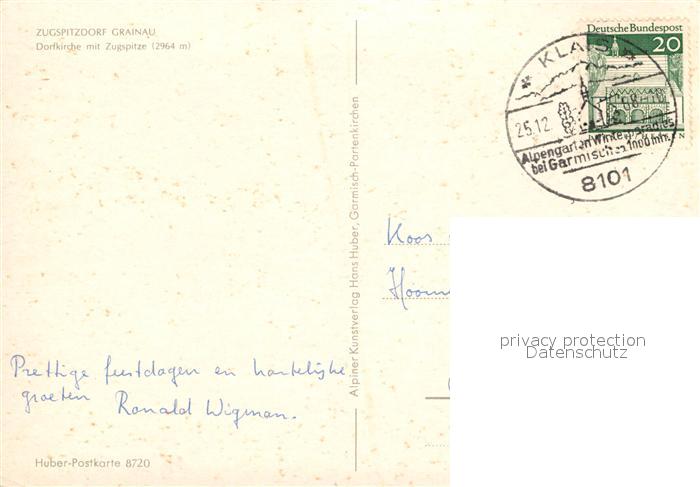 ZUGSPITZDORF GRAINAU
Dorfkirche mit Zugspitze (2964 m)
Deutsche Bundespost
20
KLAIS
25.12
Alpengarten Winterparadies
bei Garmisch ca. 1000 m ü.
8101
Alpiner Kunstverlag Hans Huber, Garmisch-Partenkirchen
Koos
privacy protection
Datenschutz
Prettige feestdagen en hartelijke
groeten Ronald Wigman.
Huber-Postkarte 8720